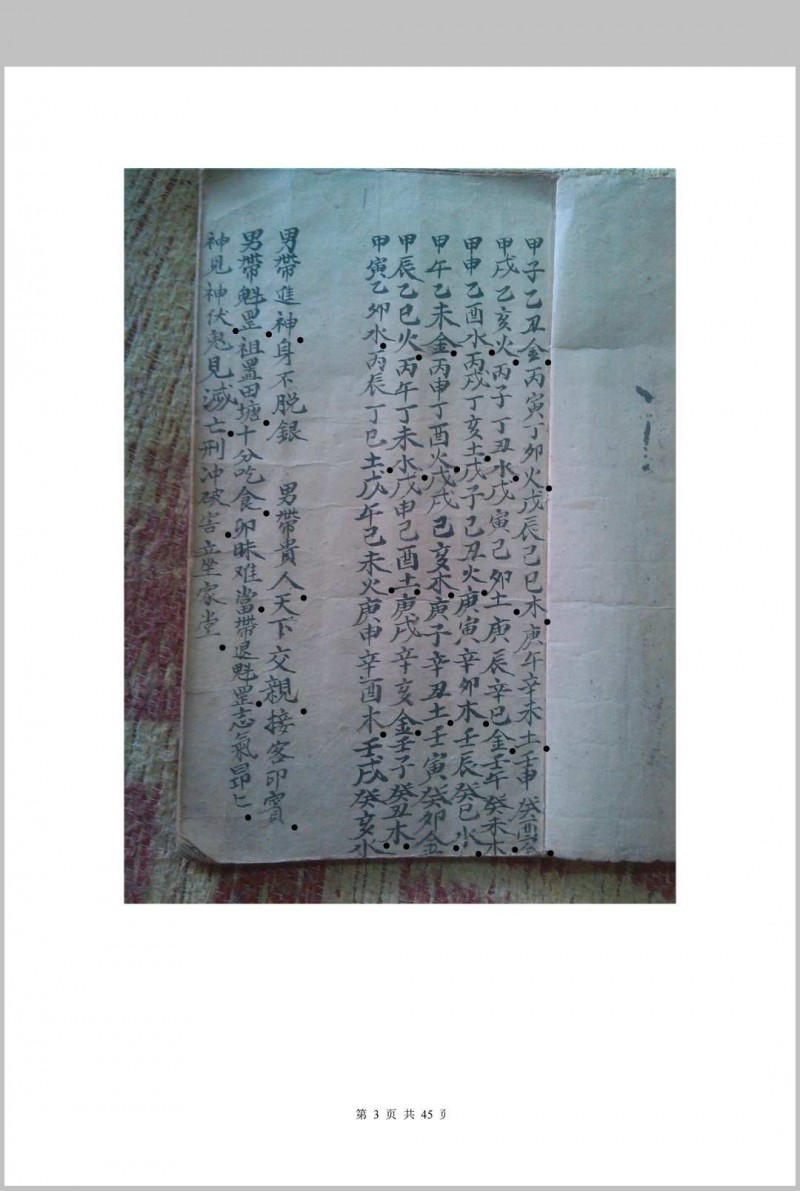 甲子乙丑金丙寅丁卯火戊辰己巳木庚午辛未土壬申癸酉金
甲戌乙亥火丙子丁丑水戊寅己卯土庚辰辛巳金壬午癸未木
甲申乙酉水丙戌丁亥土戊子己丑火庚寅辛卯木壬辰癸巳水
甲午乙未金丙申丁酉火戊戌己亥木庚子辛丑土壬寅癸卯金
甲辰乙巳火丙午丁未水戊申己酉土庚戌辛亥金壬子癸丑木
甲寅乙卯水丙辰丁巳土戊午己未火庚申辛酉木壬戌癸亥水
男帶進神身不脱銀 男帶貴人天下交親接客印賓
男帶魁罡祖置田塘十分吃食卯昧难當帶退魁罡志氣昂匕
神見神伏鬼見滅亡刑冲破害立坐家堂
第 3 页 共 45